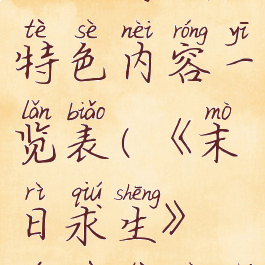 tè sè nèi róng yī
特色内容一
lǎn biǎo mò
览表(《末
rì qiú shēng
日求生》